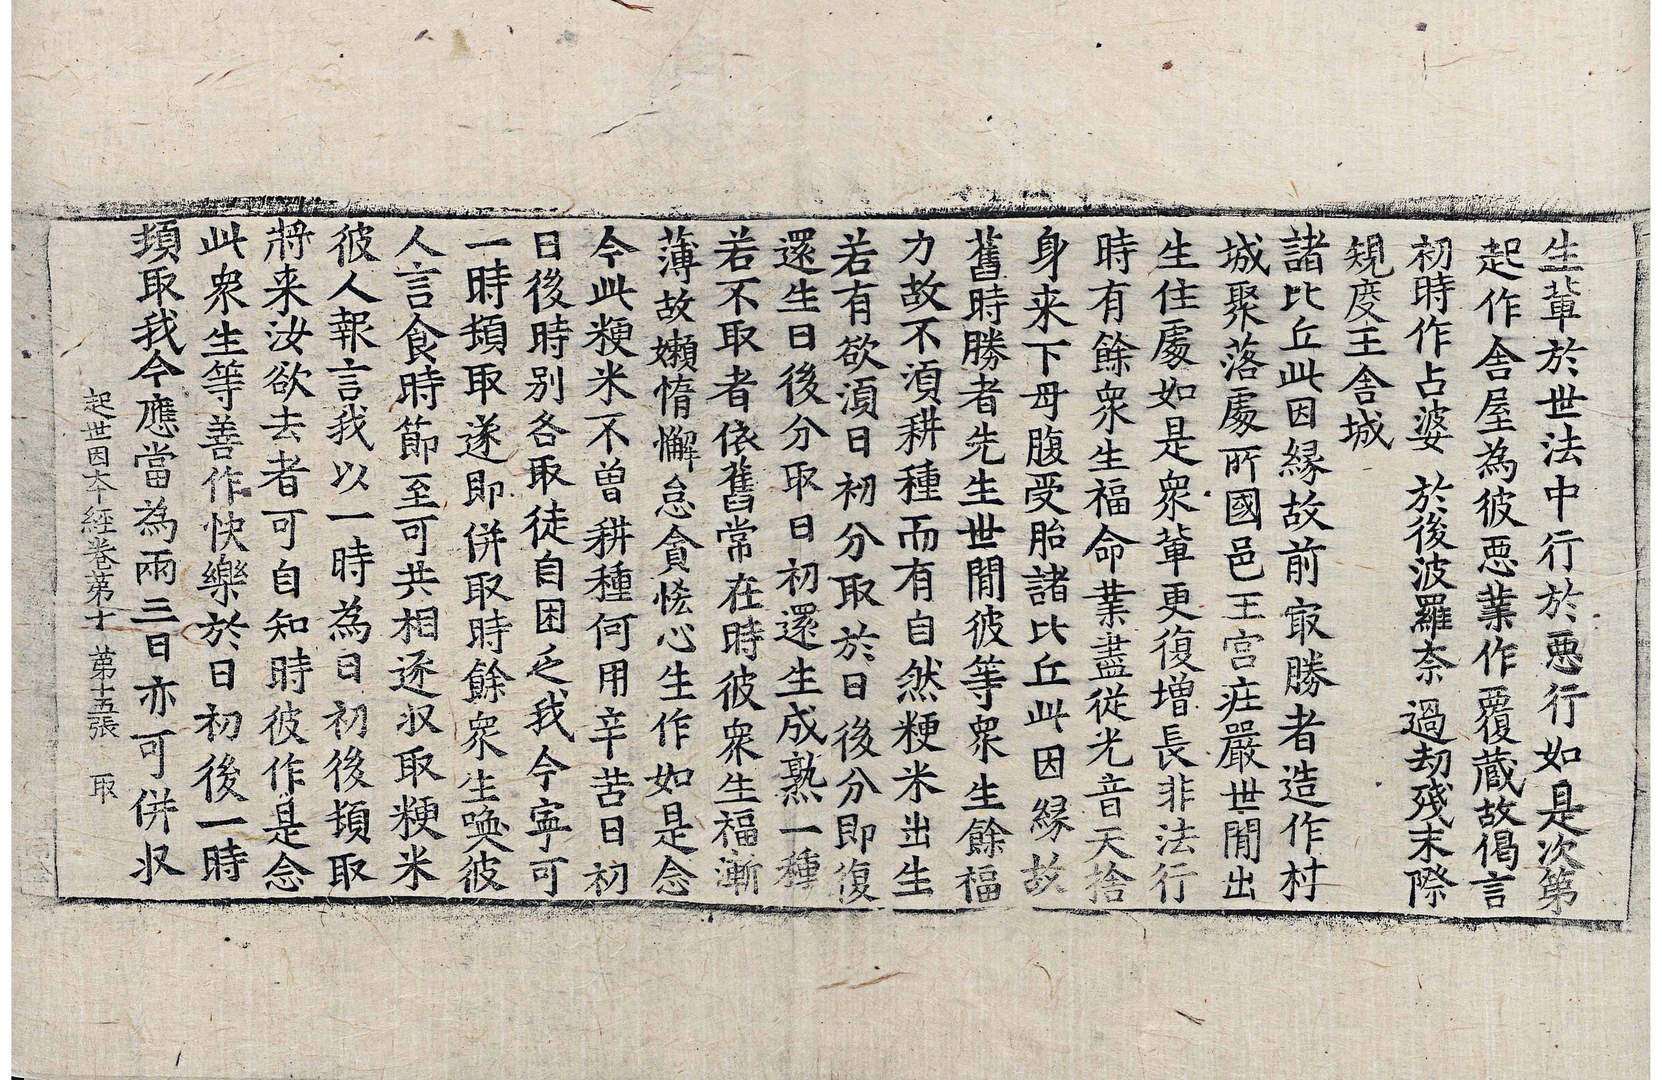 生軰於世法中行於惡行如是次第
起作舍屋為彼惡業作覆藏故偈言
初時作占婆　於後波羅奈　過劫殘末際
規度王舍城
諸比丘此因縁故前㝡勝者造作村
城聚落處所國邑王宮莊嚴世閒出
生住處如是衆軰更復增長非法行
時有餘衆生福命業盡從光音天捨
身来下母腹受胎諸比丘此因縁故
舊時勝者先生世閒彼等衆生餘福
力故不湏耕種而有自然粳米出生
若有欲湏日初分取於日後分即復
還生日後分取日初還生成熟一種
若不取者依舊常在時彼衆生福漸
薄故嬾惰懈怠貪恡心生作如是念
今此粳米不曾耕種何用辛苦日初
日後時別各取徒自困乏我今寧可
一時頓取遂即併取時餘衆生喚彼
人言食時節至可共相逐収取粳米
彼人報言我以一時為日初後頓取
將来汝欲去者可自知時彼作是念
此衆生等善作快樂於日初後一時
頓取我今應當為兩三日亦可併収
起世因本經卷第十　第十五張　取